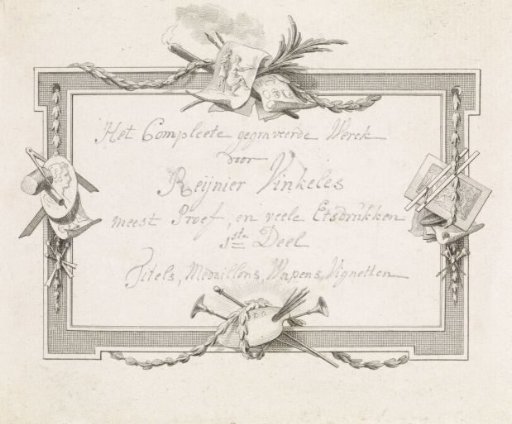 Het Compleete gegraveerde Werck
door
Reijnier Vinkeles
meest Proef, en veele Etsdrukken
1ste Deel
Titels, Medaillons, Wapens, Vignetten